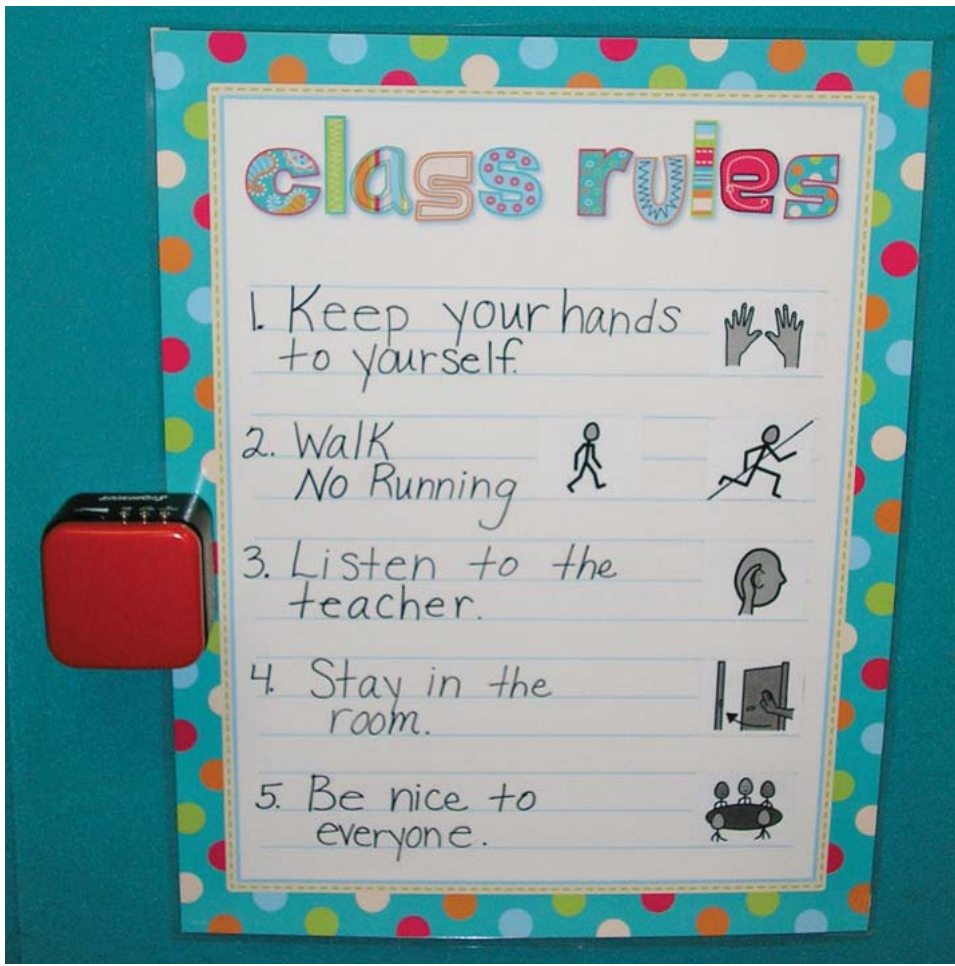 class rules
1. Keep your hands
to yourself.
2. Walk
No Running
3. Listen to the
teacher.
4. Stay in the
room.
5. Be nice to
everyone.